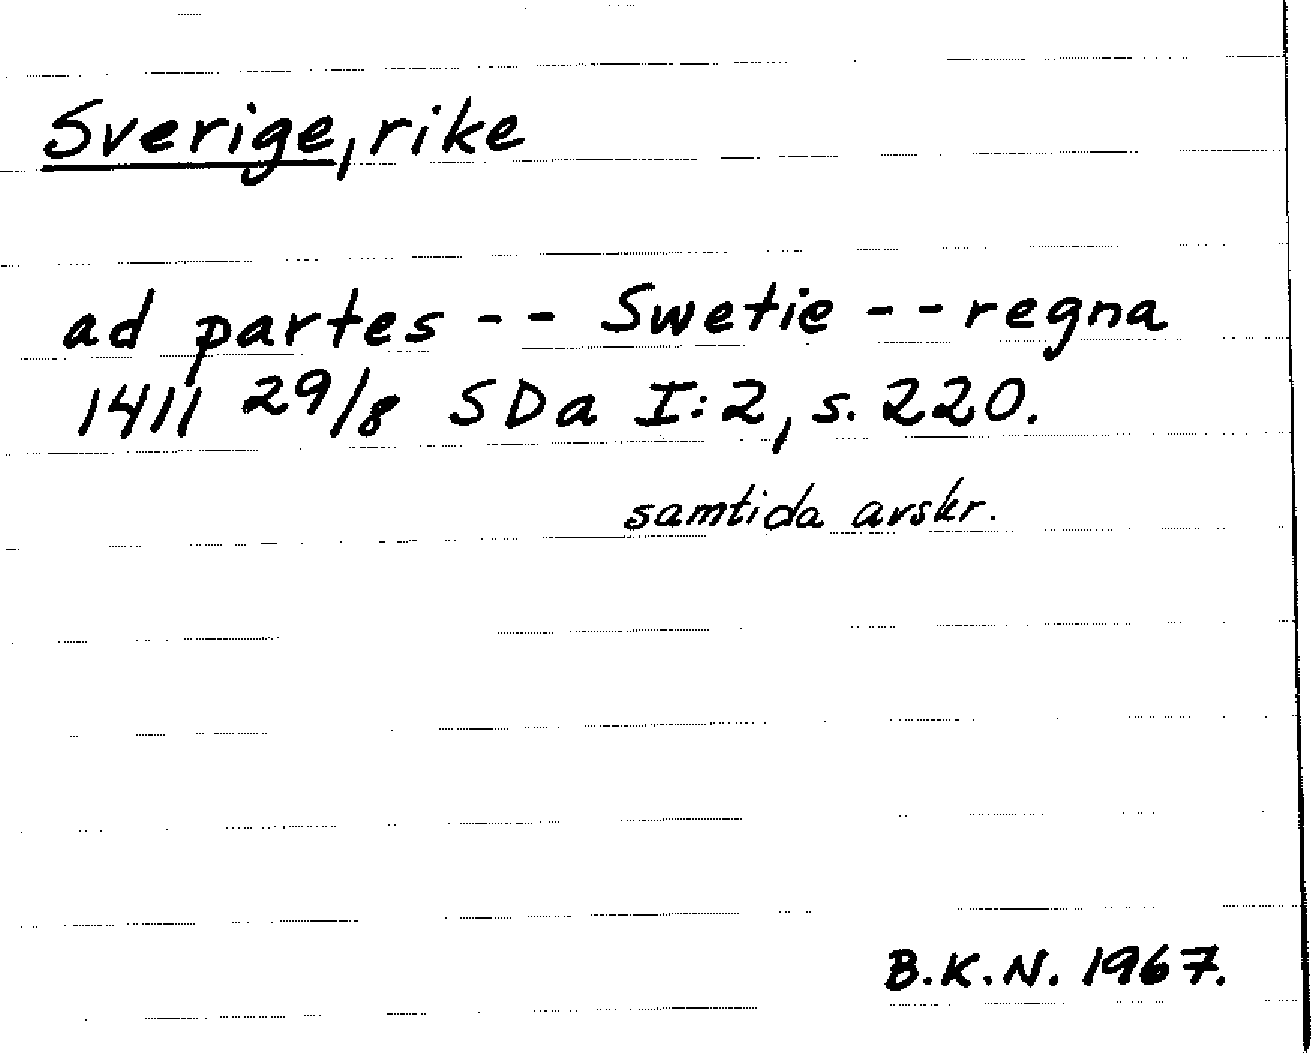 Sverige, rike
ad partes -- Swetie -- regna
1411 29/8 SDa I:2, s. 220.
samtida avskr.
B.K.N. 1967.